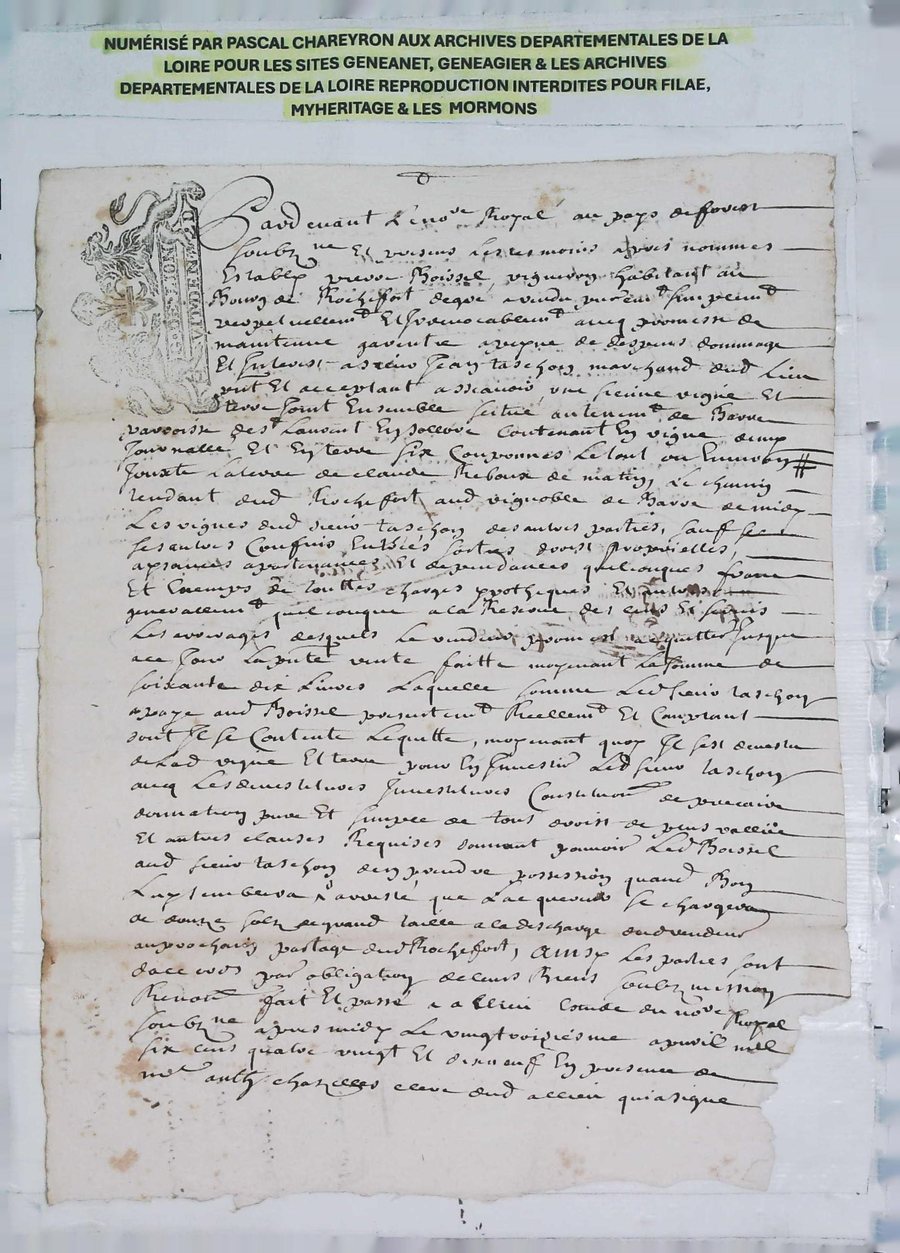 NUMÉRISÉ PAR PASCAL CHAREYRON AUX ARCHIVES DEPARTEMENTALES DE LA
LOIRE POUR LES SITES GENEANET, GENEAGIER & LES ARCHIVES
DEPARTEMENTALES DE LA LOIRE REPRODUCTION INTERDITES POUR FILAE,
MYHERITAGE & LES MORMONS
Pardevant le no.re Royal au pays de forest
soubz.ne Et presens les tesmoins apres nommes
Estably pierre Boissel, vigneron habitant au
Bourg de Rochefort a vendu purem.t simplem.t
perpetuellem.t Et Irrevocablem.t avec promesse de
maintenir garentir a peyne de despens dommage
Et Interest a sieur Jean taschon marchand dud lieu
pnt Et acceptant assavoir, une sienne vigne Et
terre Joint Ensemble scitue au tenem.t de Barre
parroisse de s.t Laurent En sollore contenant En vigne
Journallee Et En terre six Couponnes le tout ou Environ #
Jouxte la terre de claude Reboux de matin, le chemin
tendant dud Rochefort aud vignoble de Barre de midy
Les vignes dud sieur taschon des autres parties, sauf ses
ses autres Confins Entrées sorties droits proprietes,
aysances apartenances Et dependances quelconques franc
Et Exempt de touttes charges ypotheques Et autres
generallem.t quelconque a la Reserve des cens Et servis
Les arrerages desquels le vendeur promet acquitter Jusque
a ce Jour la pnte vente faitte moyenant la somme de
soixante dix livres laquelle somme led sieur taschon
a paye aud Boissel presentem.t Reellem.t Et Comptant
dont Il se Contente le quitte, moyenant quoy Il sest demestu
de lad vigne Et terre pour En Investir led sieur taschon
avec les devestitures Investitures Constitution de precaire
donnation pure Et simple de tous droits de plus vallue
Et autres clauses Requises donnant pouvoir led Boissel
aud sieur taschon den prendre possession quand Bon
Luy semblera arresté, que lacquereur se chargera
de douze solz de grand taille a la descharge dud vendeur
au prochain partage dud Rochefort, Ainsy les parties sont
daccord par obligation de leurs Biens soubzmission
Renon.on fait Et passé a allieu Estude du no.re Royal
soubz.ne apres midy le vingt troisiesme apvril mil
six cens quatre vingt Et dixneuf En presence de
m.re anth chazelles clerc dud allieu qui a signe